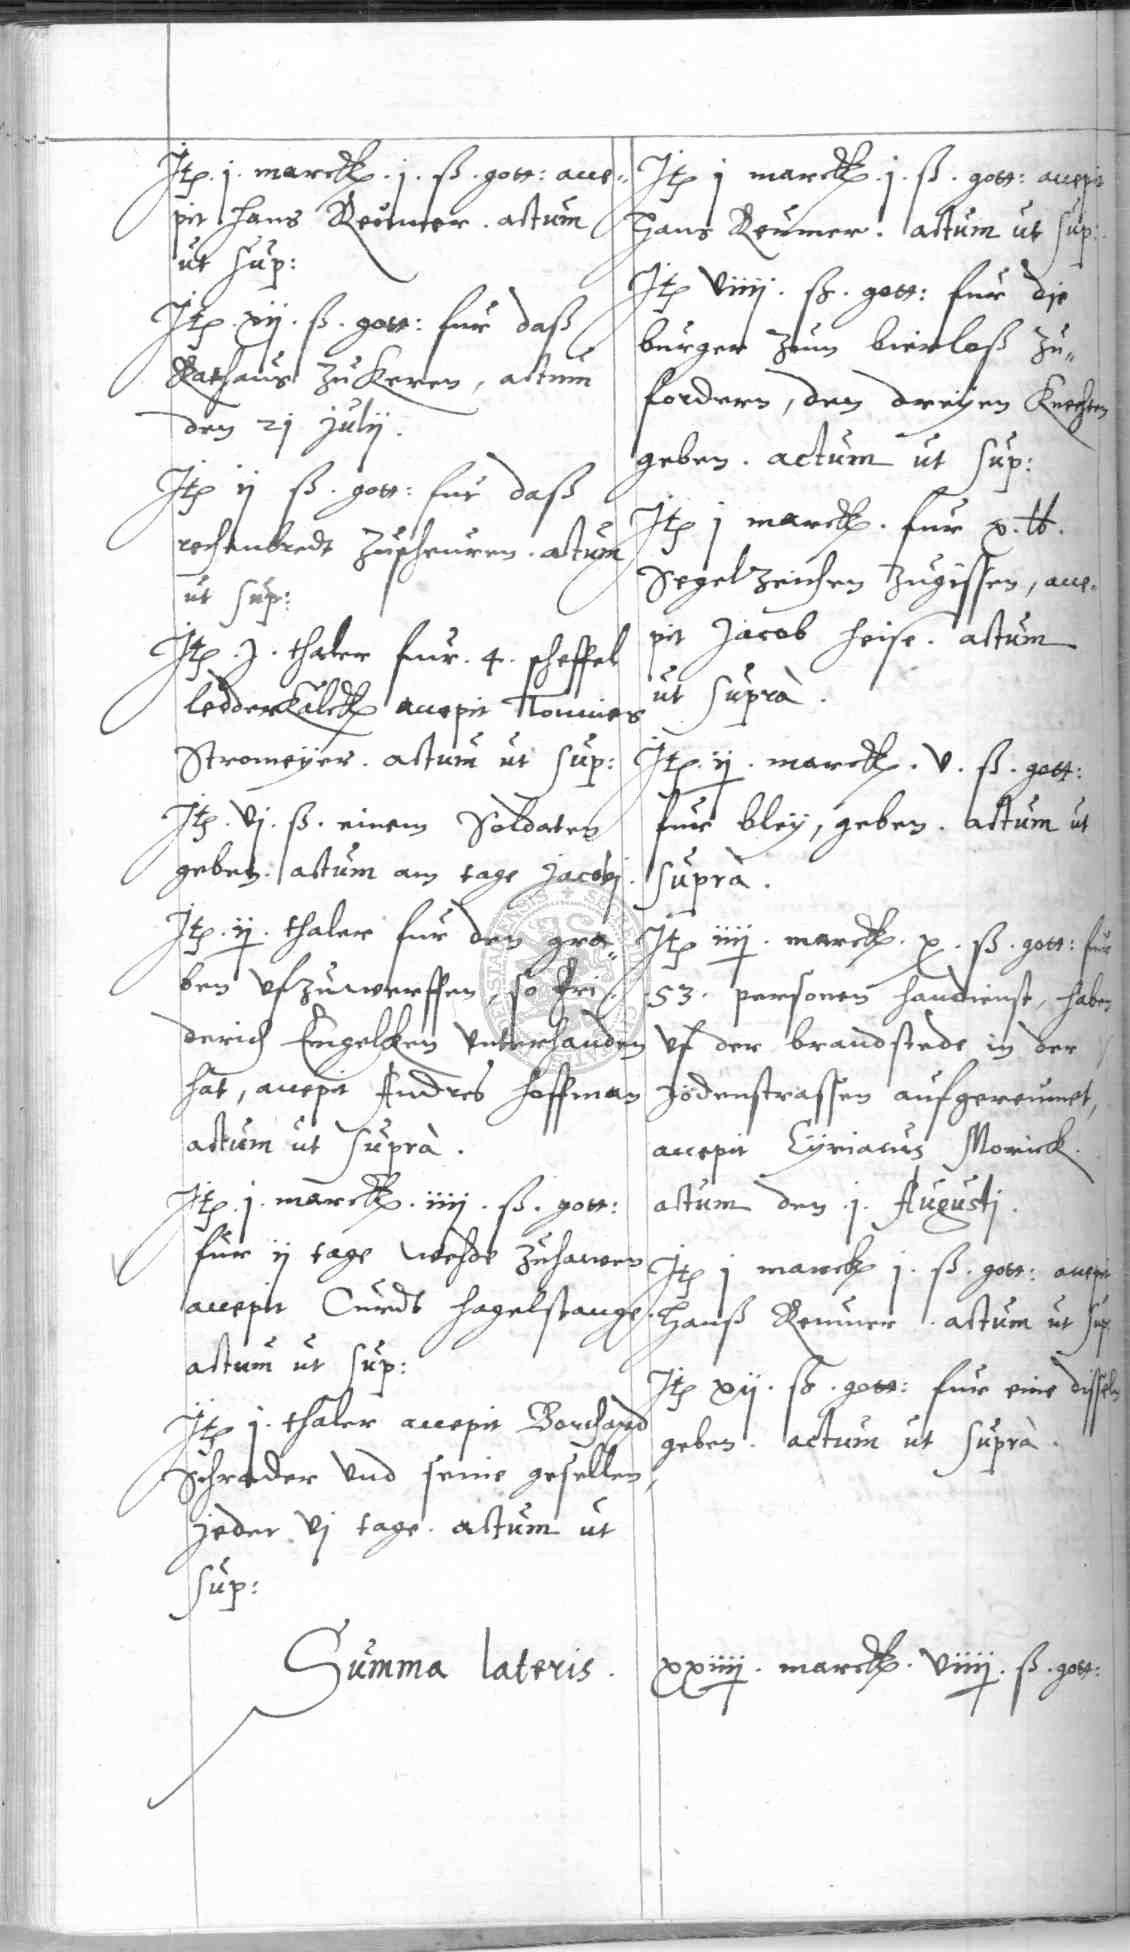 Jtp. j. marck. j. ß. gott: acce-
pit hans Reümer. actum
ut sup:
Jtp. xij. ß. gott: fur daß
Rathaus zu Keren, actum
den 21 julij.
Jtp ij ß. gott: fur daß
rechenbredt zuscheuren. actum
ut sup:
Jtp. j. thaler fur. 4. scheffel
ledderkalck accepit Tonnies
Stromeyer. actum ut sup:
Jtp. vj. ß. einem Soldaten
geben. actum am tage jacobj.
Jtp. ij. thaler fur den gra-
ben ufzuwerffen, so Fri-
derich Engelken unterhanden
hat, accepit Andres hoffman
actum ut suprà.
Jtp. j. marck. iiij. ß. gott:
fur ij tage wehde zuhawen
accepit Curdt hagelstange.
actum ut sup:
Jtp j. thaler accepit Borchard
Schrader und seine gesellen,
jeder vj tage. actum ut
sup:
Jtp j marck. j. ß. gott: accepit
Hans Reumer. actum ut sup:
Jtp viiij. ß. gott: fur die
burger zum bierloß zu-
fordern, den dreyen Knechten
geben. actum ut sup:
Jtp j marck. fur x. lb.
Segelzeichen zugissen, acce-
pit Jacob heise. actum
ut suprà.
Jtp. ij. marck. v. ß. gott:
fur bley, geben. actum ut
suprà.
Jtp iiij. marck. x. ß. gott: fur
53. personen handienst, haben
uf der brandstede in der
Jödenstrassen aufgereumet,
accepit Cyriacus Morick.
actum den j. Augustj.
Jtp j marck j. ß. gott: accepit
Hanß Reumer. actum ut sup
Jtp xij. ß. gott: fur eine disseln
geben. actum ut suprà.
Summa lateris. xxiiij. marck. viiij. ß. gott: